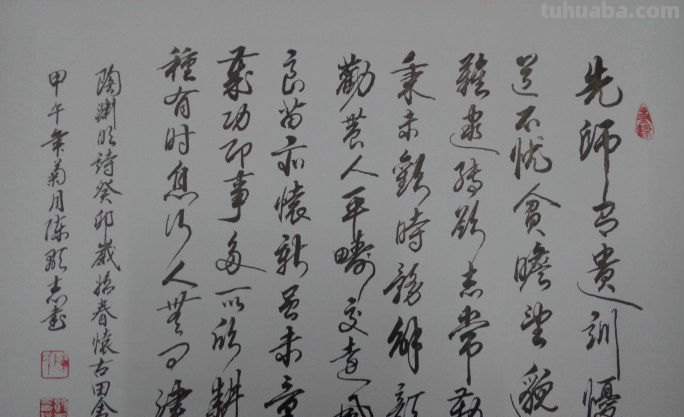 先師有遺訓憂
道不忧貧瞻望邈
難逮轉欲志常勤
秉耒歡時務解顏
勸農人平疇交遠風
良苗亦懷新虽未量
歲功即事多所欣耕
種有時息行人無问津
陶渊明詩癸卯歲始春懷古田舍
甲午年菊月陳志書
tuhuaba.com